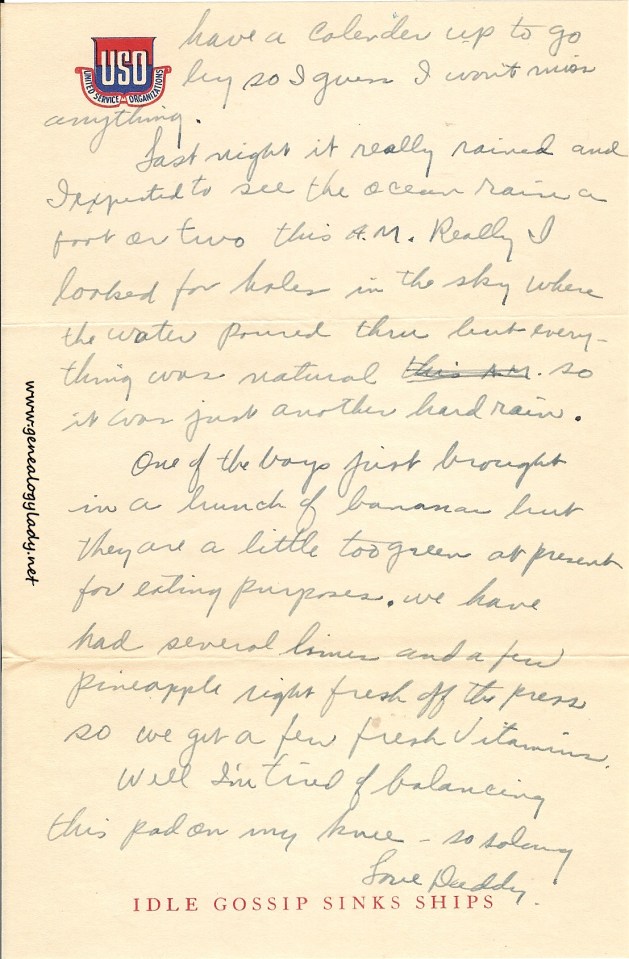 USO
UNITED SERVICE ORGANIZATIONS
have a calender up to go
by so I guess I won't miss
anything.
Last night it really rained and
I expected to see the ocean raise a
foot or two this A.M. Really I
looked for holes in the sky where
the water poured thru but every-
thing was natural this A.M. so
it was just another hard rain.
One of the boys just brought
in a bunch of bananas but
they are a little too green at present
for eating purposes. we have
had several limes and a few
pineapple right fresh off the press
so we get a few fresh Vitamins.
Well I'm tired of balancing
this pad on my knee - so solong
Love Daddy.
IDLE GOSSIP SINKS SHIPS
www.genealogylady.net